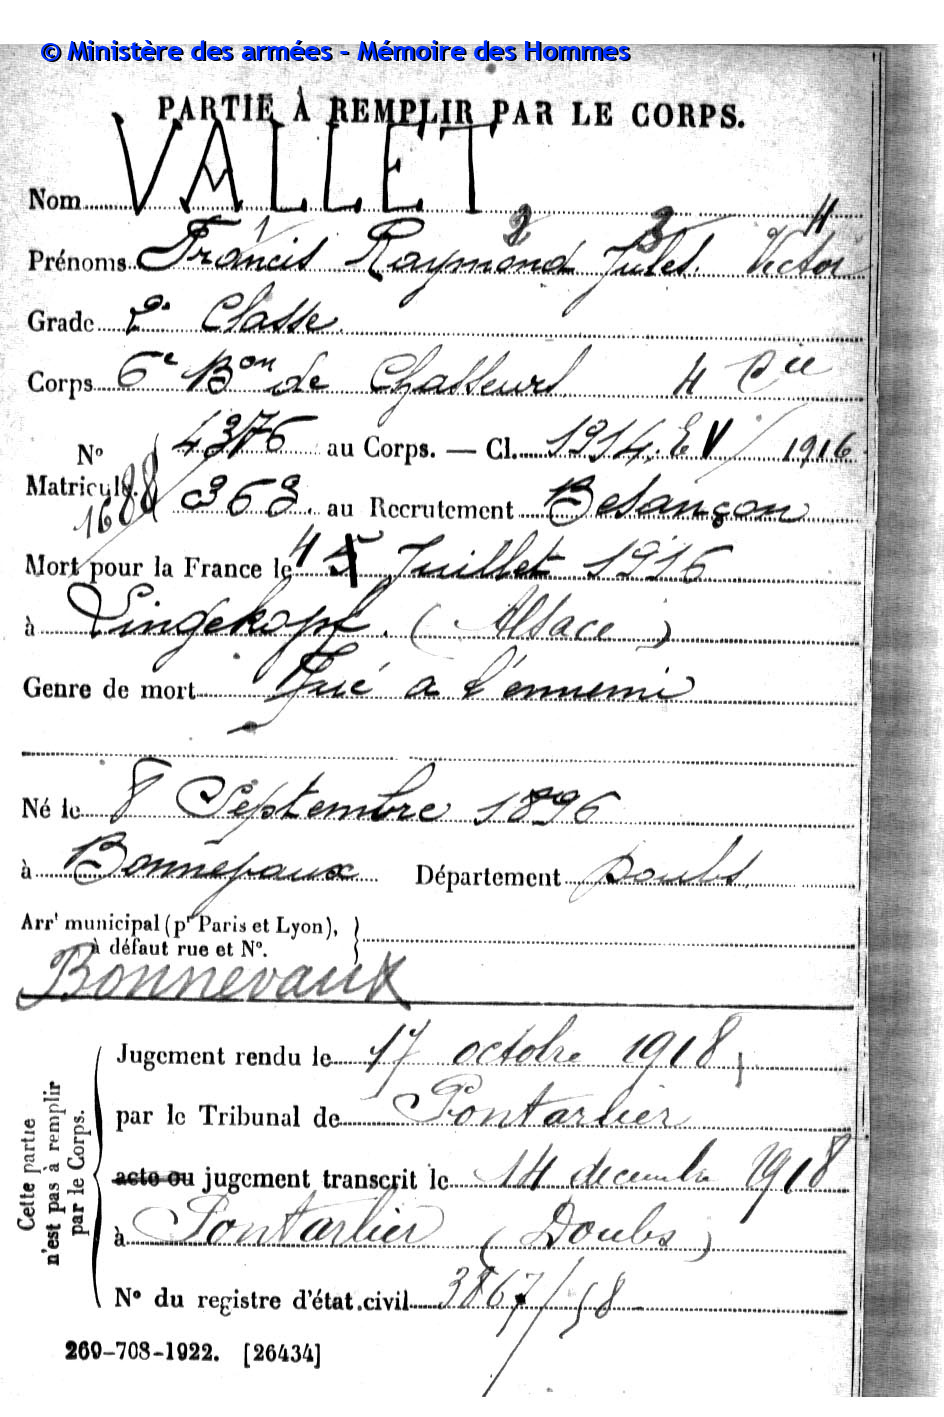 © Ministère des armées - Mémoire des Hommes
PARTIE À REMPLIR PAR LE CORPS.
Nom VALLET
2 3 4
Prénoms Francis Raymond Jules Victor
Grade 2e Classe
Corps 6e Bon de Chasseurs 4 Cie
No 4376 au Corps. — Cl. 1914. EV / 1916
Matricule. 1688 363 au Recrutement Besançon
Mort pour la France le Juillet 1916
à Lingekopf. (Alsace)
Genre de mort Tué à l'ennemi
Né le 8 Septembre 1896
à Bonnevaux Département Doubs
Arrt municipal (pr Paris et Lyon),
à défaut rue et No.
Bonnevaux
Cette partie
n'est pas à remplir
par le Corps.
Jugement rendu le 17 octobre 1918
par le Tribunal de Pontarlier
acte ou jugement transcrit le 14 decembre 1918
à Pontarlier (Doubs)
No du registre d'état civil 3867/58
269-708-1922. [26434]